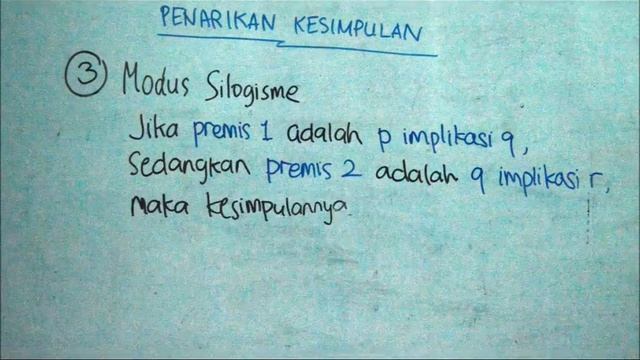 PENARIKAN KESIMPULAN
3 Modus Silogisme
Jika premis 1 adalah p implikasi q,
Sedangkan premis 2 adalah q implikasi r,
Maka kesimpulannya.